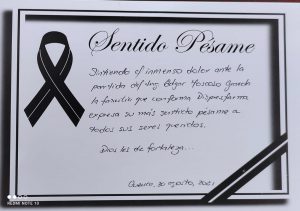 Sentido Pésame
Sintiendo el inmenso dolor ante la
partida del Ing. Edgar Moscoso Granda
la familia que conforma Dispresfarma
expresa su más sentido pésame a
todos sus seres queridos.
Dios les de fortaleza...
Cuenca, 30 agosto, 2021
REDMI NOTE 10